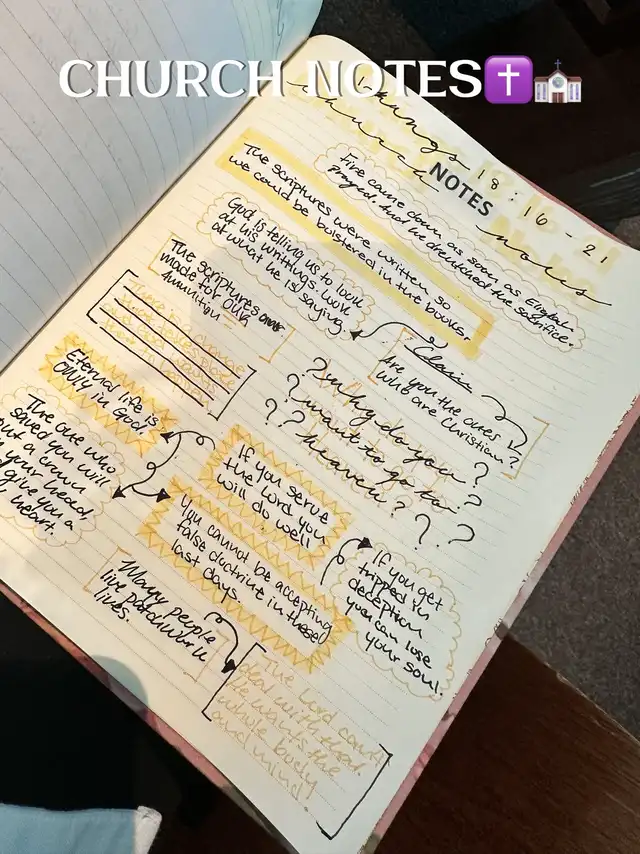 CHURCH NOTES✝️⛪
Kings 18:16-21
church NOTES notes
Fire came down as soon as Elijah
prayed. And he drenched the sacrifice.
The scriptures were written so
we could be bolstered in the books.
God is telling us to look
at his writtings. Look
at what he is saying.
The scriptures are
made for our
ammunition
Classic
Are you the ones
who are Christian?
There is a change
that takes place
and God wants
? why do you ?
? want to go to ?
? ? heaven? ? ? ?
Eternal life is
ONLY in God.
The one who
saved you will
put a crown
on your head
give you a
heart.
If you serve
the Lord you
will do well
You cannot be accepting
false doctrine in these
last days.
If you get
trapped in
deception
you can lose
your soul.
Many people
live patchwork
lives.
The Lord can't
deal with that.
He wants the
whole body
and mind.